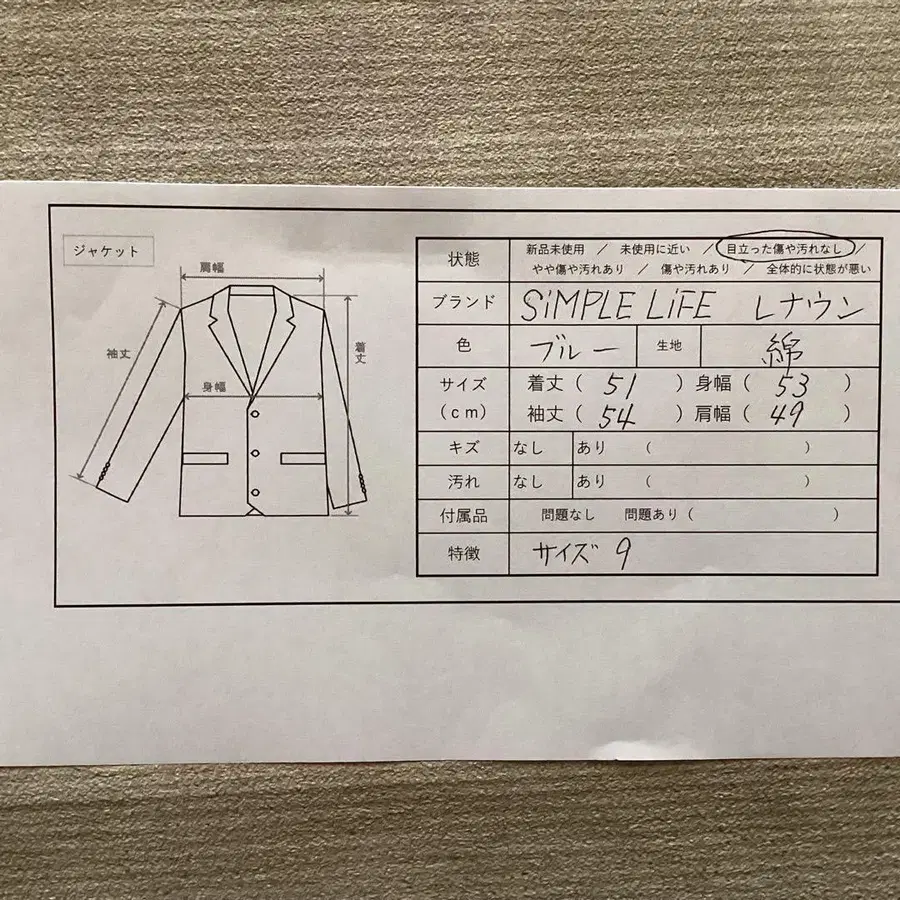 ジャケット
肩幅
袖丈
着丈
身幅
状態 新品未使用 / 未使用に近い / 目立った傷や汚れなし /
やや傷や汚れあり / 傷や汚れあり / 全体的に状態が悪い
ブランド SiMPLE LiFE レナウン
色 ブルー 生地 綿
サイズ 着丈 ( 51 ) 身幅 ( 53 )
(cm) 袖丈 ( 54 ) 肩幅 ( 49 )
キズ なし あり ( )
汚れ なし あり ( )
付属品 問題なし 問題あり ( )
特徴 サイズ 9